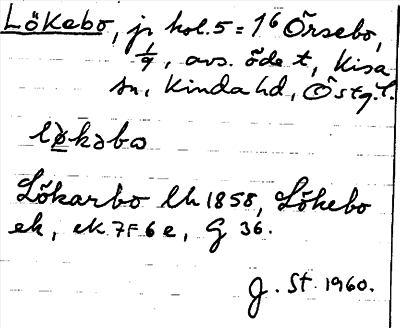 Lökebo, jr kol. 5 = 1⁶ Örsebo,
1/9, avs. öde t, Kisa
sn, Kinda hd, Östg. l.
lø̀kəbo
Lökarbo lh 1858, Lökebo
ek, ek 7F6e, G 36.
G. St 1960.